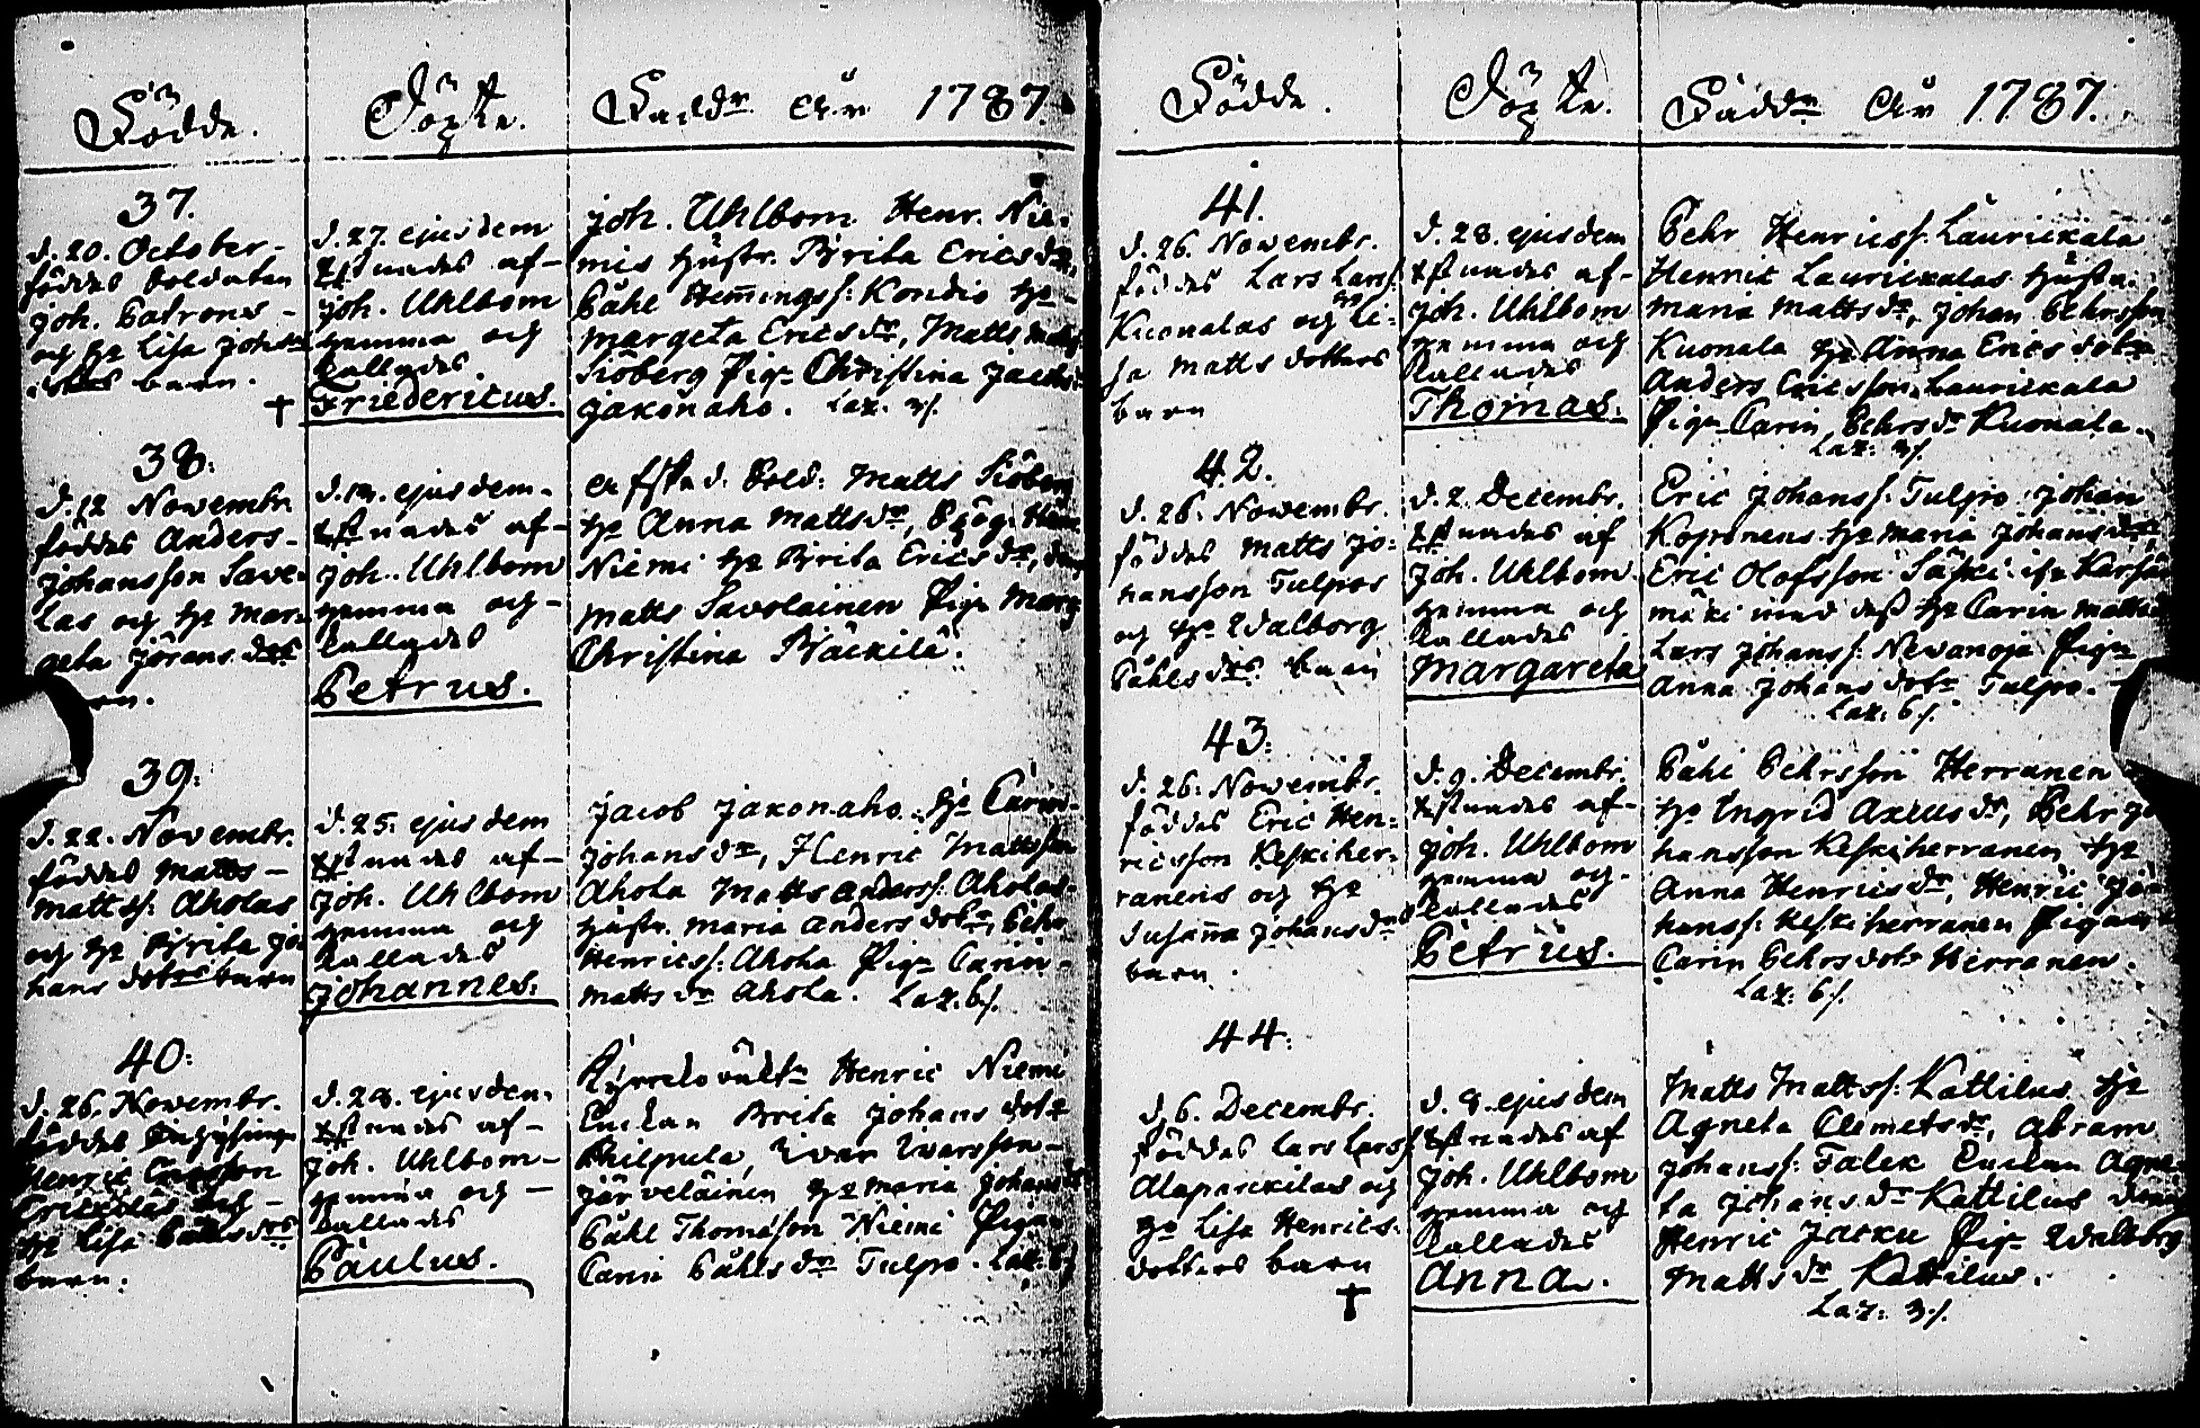 Födde.
Döpte.
Fadd: År 1787.
37.
d. 20. October-
föddes Soldaten
Joh. Patrons-
och h: Lisa Johs
barn.
†
d. 27. ejusdem
Xstnades af-
Joh. Uhlbom
hemma och
kallades
Friedericus.
Joh. Uhlbom Henr. Nie-
mis hustr. Brita Ericsdr,
Påhl Hemmingss: Kondio h:
Margeta Ericsdr, Matts
Siöberg Pig: Christina Jacobs
Jakonaho. Laz. 3/.
38:
d. 12 Novembr.
föddes Anders-
Johansson Save-
las och h: Mar-
geta Jörans drs
d. ejusdem-
Xstnades af-
Joh. Uhlbom
hemma och-
kallades
Petrus.
Sold: Matts Siöberg
h: Anna Mattsdr,
Niemi h: Brita Ericsdr,
Matts Savolainen Pig:
Christina Bäckilä.
39:
d. 22. Novembr.
föddes Matts-
Mattss: Aholas
och h: Brita Jo-
hans dotrs barn
d. 25. ejusdem
Xstnades af-
Joh. Uhlbom
hemma och
kallades
Johannes.
Jacob Jakonaho. h: Carin
Johansdr, Henric Mattsson
Ahola Matts Anderss: Aholas
hustr. Maria Anders dotr, Pehr
Henricss: Ahola Pig: Carin-
Mattsdr Ahola. Laz. 6/.
40:
d. 26. Novembr.
föddes
Henric
Erickilas och-
h: Lisa Påhlsdrs
barn.
d. 28. ejusdem
Xstnades af-
Joh. Uhlbom-
hemma och-
kallades
Paulus.
Kyrckovärd: Henric Niemi
Enkan Brita Johans dotr
Philpula, Ivar Ivarsson-
Järveläinen h: Maria Johans
Påhl Thomasson Niemi Pigan
Carin Påhlsdr Tulpo. Laz. 6/
Födde.
Döpte.
Fadd: År 1787.
41.
d. 26. Novembr.
föddes Lars Larss:
Kuonalas och h: Li-
sa Matts dotters
barn
d. 28. ejusdem
Xstnades af-
Joh. Uhlbom
hemma och
kallades
Thomas.
Pehr Henricss: Laurickala
Henric Laurickalas hustr:
Maria Mattsdr, Johan Pehrsson
Kuonala h: Anna Erics dotr
Anders Ericsson Laurickala
Pig: Carin Pehrsdr Kuonala.
Laz: 3/.
42.
d. 26. Novembr.
föddes Matts Jo-
hansson Tulpos
och h: Walborg
Påhlsdrs barn
d. 2. Decembr.
Xstnades af
Joh. Uhlbom.
hemma och
kallades
Margareta
Eric Johanss: Tulpo Johan
Koponens h: Maria Johansdr,
Eric Olofsson
mäki med dess h: Carin Matts
Lars Johanss: Nevanoja Pig:
Anna Johans dotr Tulpo.
Laz: 6/.
43:
d. 26. Novembr.
föddes Eric Hen-
ricsson Keskiher-
ranens och h:
Susanna Johansdrs
barn.
d. 9. Decembr.
Xstnades af-
Joh. Uhlbom
hemma och-
kallades
Petrus.
Påhl Pehrsson Herranen
h: Ingrid Axelsdr, Pehr Jo
hansson Keskiherranen h:
Anna Henricsdr, Henric Jo
hanss: Keskiherranen Pigan
Carin Pehrs dotr Herranen.
Laz: 6/.
44:
d. 6. Decembr.
föddes Lars Larss:
Alapackilas och
h: Lisa Henrics-
dotters barn
†
d. 8. ejusdem
Xstnades af
Joh. Uhlbom
hemma och
kallades
Anna.
Matts Mattss: Kattilus h:
Agneta Clemetsdr, Abram
Johanss: Falek Enckan Agne-
ta Johansdr Kattilus dreng
Henric Jacku Pig: Walborg
Mattsdr Kattilus.
Laz: 3/.